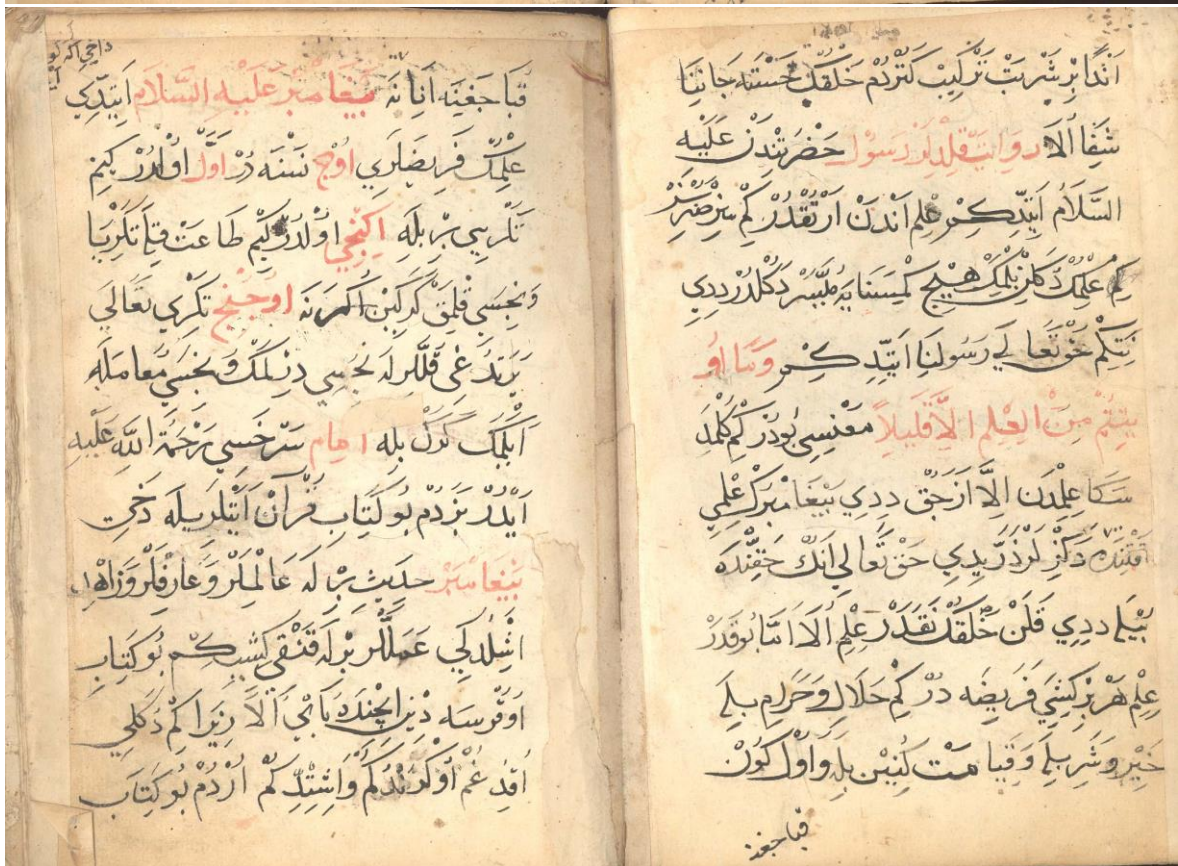 اَنْدَا بِرْ شَرْبَتْ تَرْكِيبْ كَتُرْدُمْ خَلْقُكْ خَسْتَه جَانِنَا
شَفِا اُلَا رِوَايَتْ قِلْدِلَرْ رَسُولْ حَضْرَتِنْدَنْ عَلَيْهِ
السَّلَامُ اَيِتدِ كِم عِلِم اَنْدَنْ اَرْتُقْدُرْ كِمْ سِزْ صَنُرْسِزْ
كِمْ عِلْمُكْ دُكَلِنْ بِلْمَكْ هِيچْ كِمْسَنَايَه مُيَسَّرْ دَكُلْدُرْ دِدِي
نِتَكِمْ حَقْ تَعَالَي رَسُولِنَا اَيِتدِ كِم وَمَا اُو
تِيتُمْ مِنَ الْعِلْمِ اِلَّا قَلِيلاً مَعْنِسِي بُودُرْ كِمْ كَلْمَدِ
سَكَا عِلِمْدَن اِلَّا اَزَجُقْ دِدِي پَيْغَامْبَرُكْ عِلْمِي
قَتِنْدَه دَكِزْلَرْ ذَرَّيِدِي حَقْ تَعَالَي اَنُكْ حَقِّنْدَه
بُيْلَه دِدِي قَلَنْ خَلْقُكْ نَقَدَرْ عِلْمِ اُلَا اَمَّا بُوقَدَرْ
عِلِمْ هَرْ بِرْ كِشِيَه فَرِيضَه دُرْ كِمْ حَلَال وَحَرَام بِلَه
خَيْر وَشَرِ بِلَه وَقِيَامَتْ كُنِينْ بِلَه وَاُولْ كُونْ
قباجغنه
دَاخِي
قَبَاجَغِنَه اَنَا نَه پَيْغَامْبَرْ عَلَيْهِ السَّلَامْ اَيِتدِكِي
عِلْمُكْ فَرِيضَلَرِي اُوچْ نَسْنَه دُرْ اَوَّلْ اُولْدُرْ كِيمْ
تَكْرِيِي بِرْ بِلَه اِكِنْجِي اُولْدُرْ كِيمْ طَاعَتْ قِلَا تَكْرِيَا
وَنِجَسِي قِلْمَقْ كَرَكِينْ اُكْرَنَه اُوچِنْجِ تَكْرِي تَعَالَي
يَرَتْدُغِي قُلَّرِلَه نِجَسِي دِنْلَمَكْ وَنِجَسِي مُعَامَلَه
اَيْلَمَكْ كَرَكْ بِلَه اِمَامْ سَرَخْسِي رَحْمَةُ اللّٰهِ عَلَيْهِ
اَيْدُرْ يَزْدُمْ بُو كِتَابِ قُرْآنْ اَيَتْلَرِيلَه دَخِي
پَيْغَامْبَرْ حَدِيثِ بِرْلَه عَالِمْلَرْ وَعَارِفْلَرْ وَزَاهِدْلَر
اِشْلَدُكِي عَمَلْلَرْ بِرْلَه قَنْقِي كِشِي كِم بُو كِتَابِ
اُوقُرْسَه دِينْ اِچِنْدَه يَاتِي اُلَا زِيرَا كِمْ دُكَلِي
اُقِدُغُمْ اُوكَرَنْدُكُمْ وَاِشِتْدُكِمْ اُرْدُمْ بُو كِتَابْ